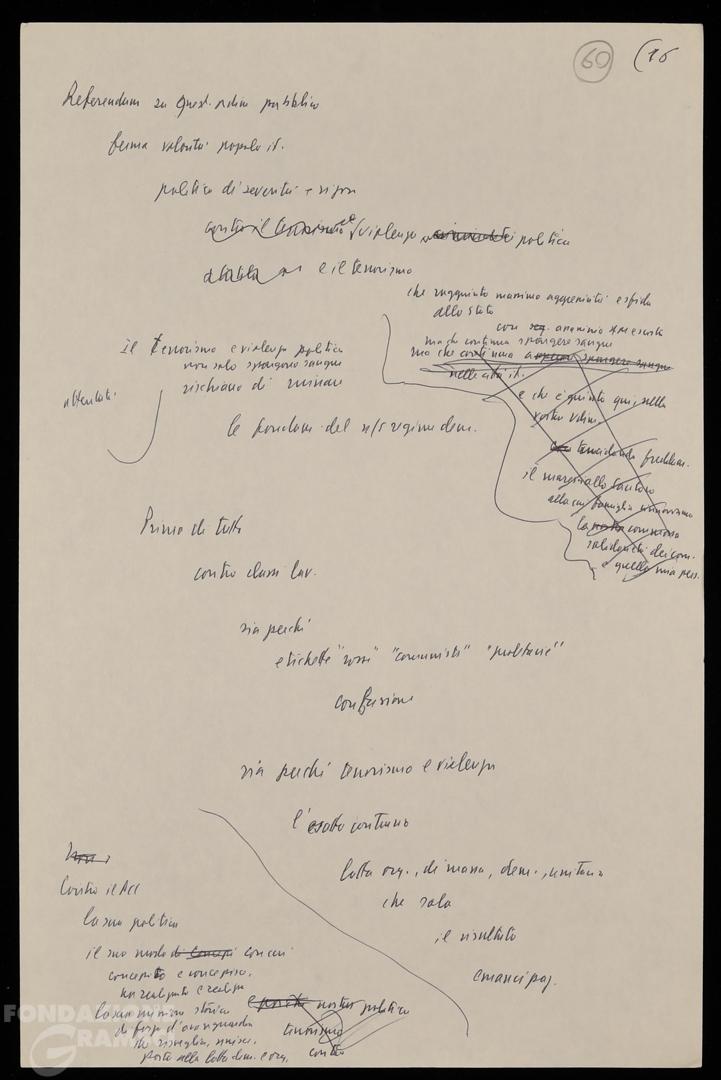 60 (16
Referendum su quest. ordine pubblico
ferma volontà popolo it.
politica di severità e rigore
contro il terrorismo e violenza politica
e il terrorismo
che raggiunto massimo aggressività e sfida
allo Stato
con
ma che continua spargere sangue
ma che continua a spargere sangue
nelle città it.
e che è giunto qui, nella
vostra
freddam.
il maresciallo
alla cui famiglia
la commossa
solidarietà dei com.
e quella mia pers.
Il terrorismo e violenza politica
non solo spargono sangue
rischiano di minare
attentati
le fondam. del ns/ regime dem.
Primo di tutto
contro classi lav.
sia perché
etichette "rossi" "comunisti" "proletarie"
confusione
sia perché terrorismo e violenza
l'esatto contrario
lotta org., di massa, dem., unitaria
che sola
il risultato
emancipaz.
Contro il PCI
la sua politica
il suo modo di
concepito e concepisce,
realizzato e realizza
la sua missione storica
di forza d'avanguardia
che risveglia, unisce,
porta alla lotta dem. e org.
e nostra politica
terrorismo
contro
FONDAZIONE
GRAMSCI